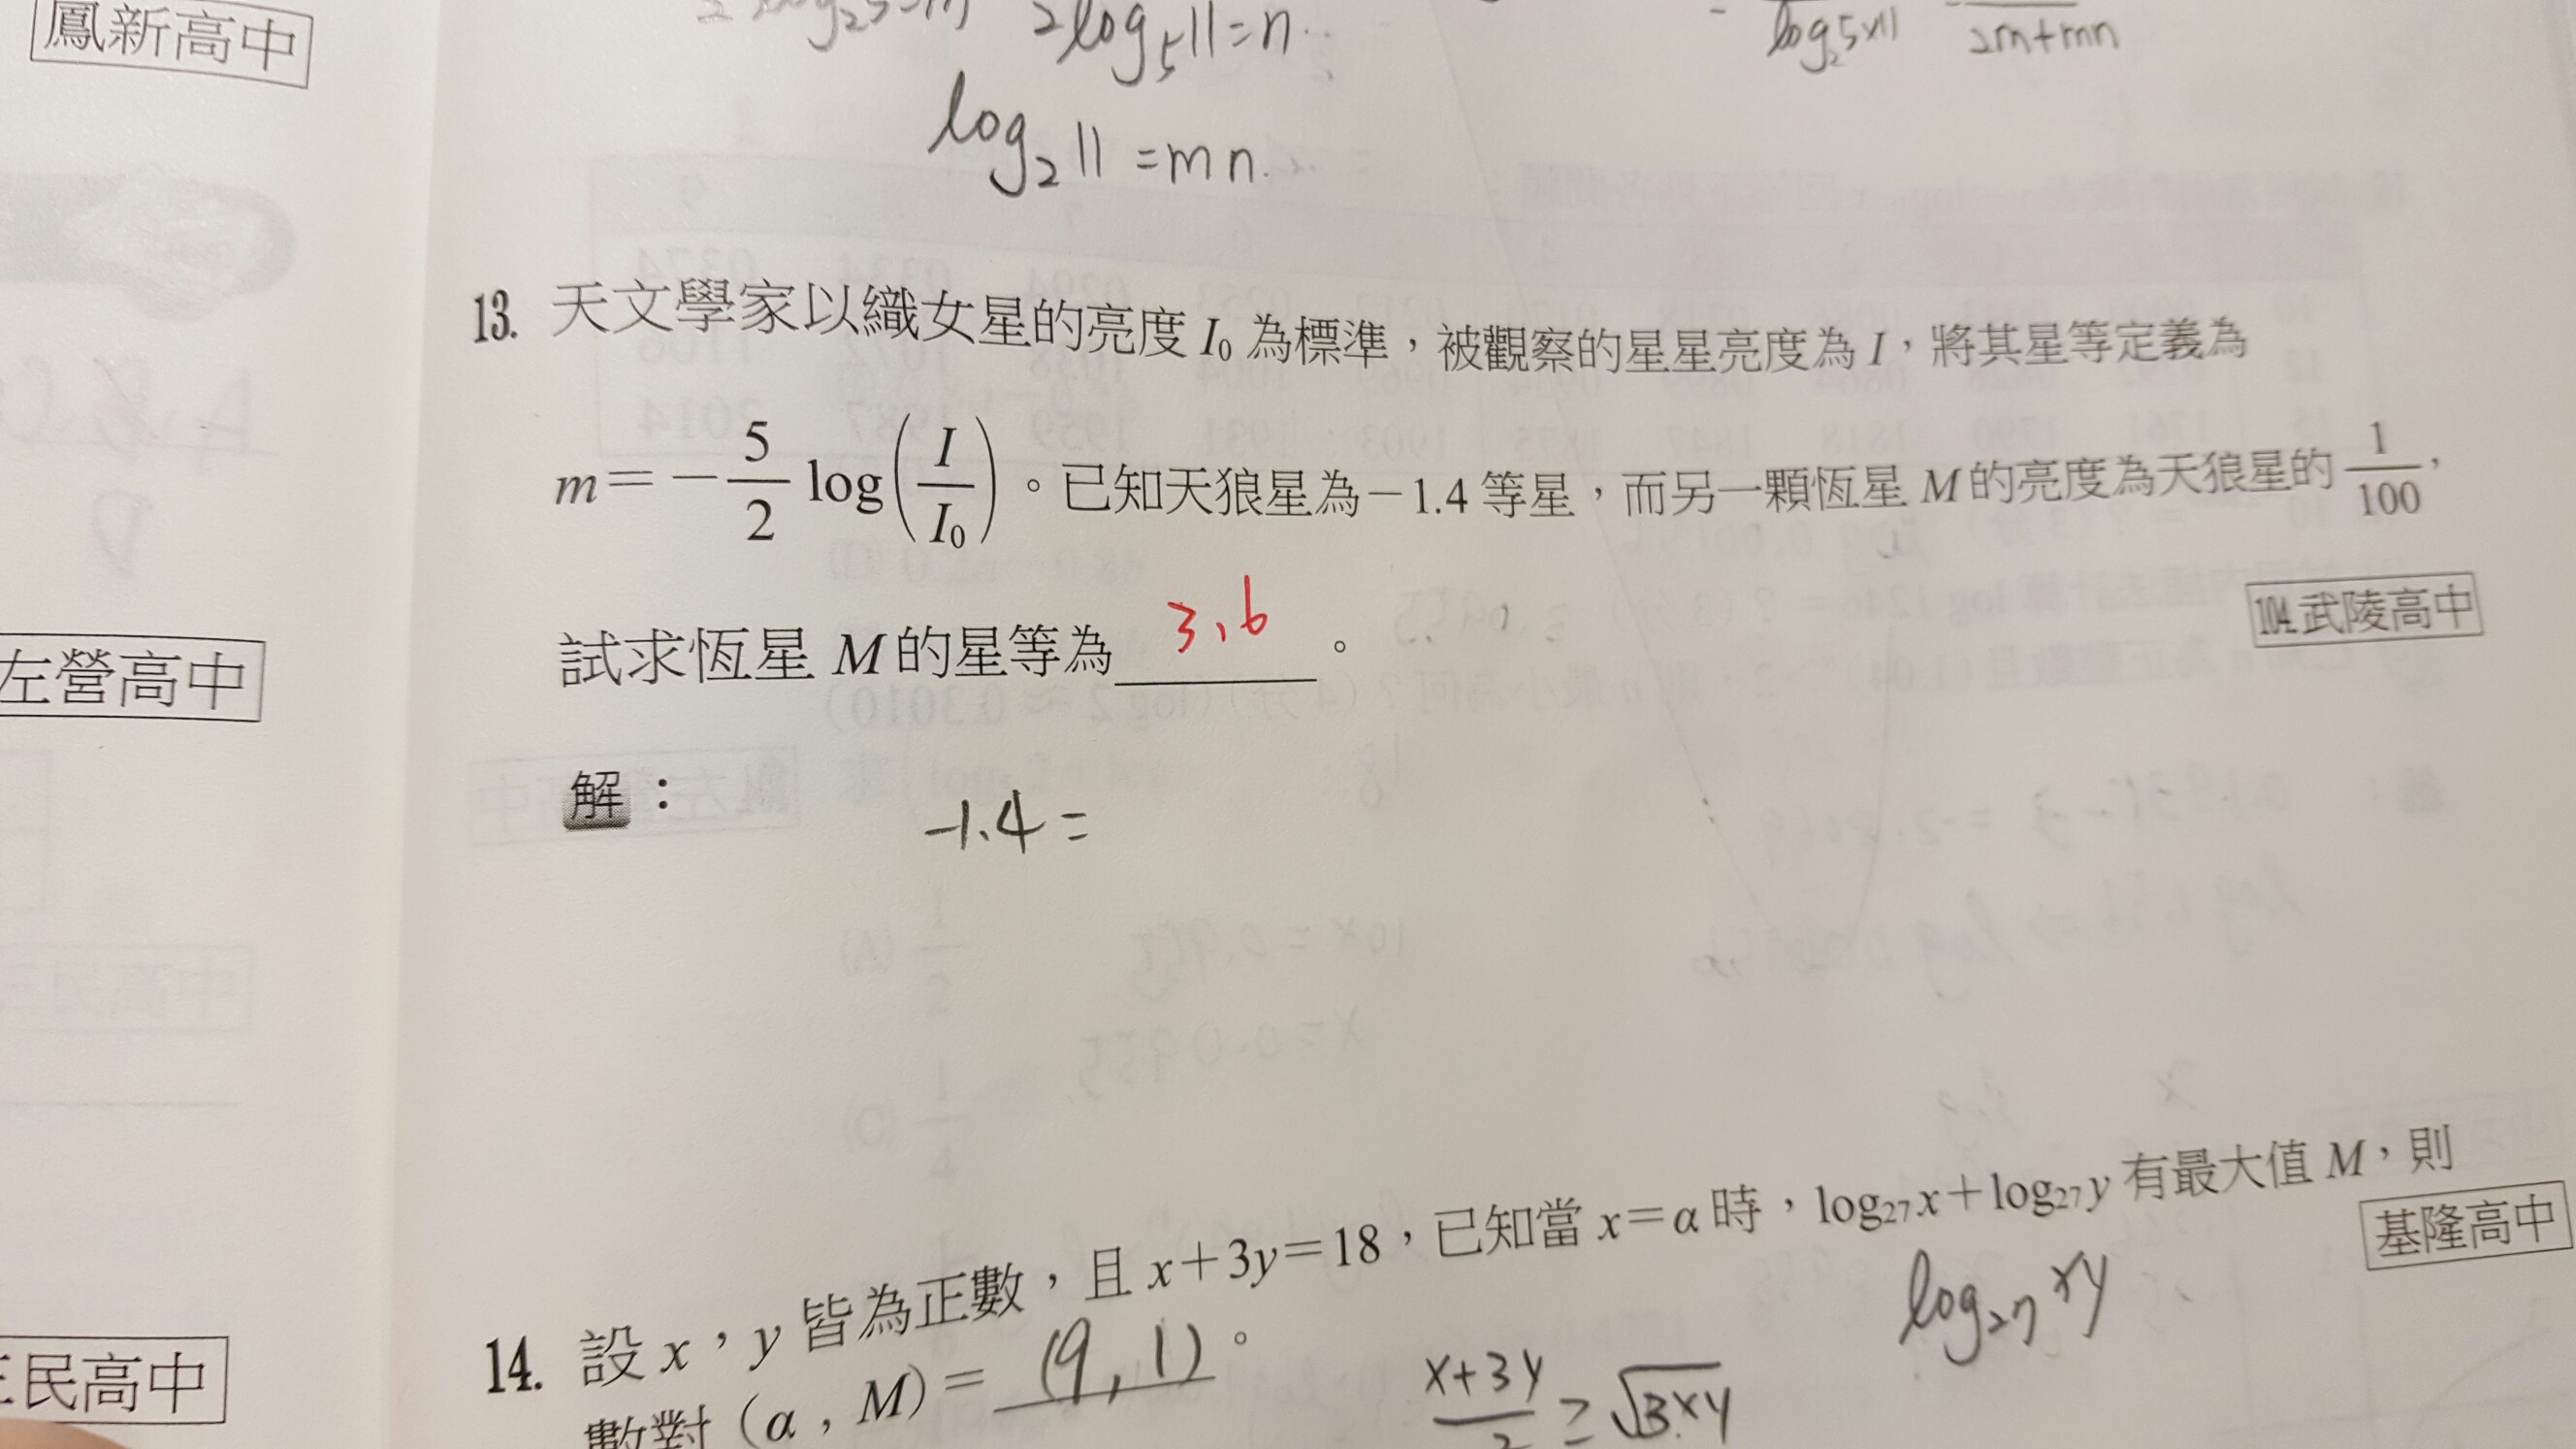 鳳新高中
2log₅11=n
log₂5×11
2m+mn
log₂11=mn
13. 天文學家以織女星的亮度 I₀ 為標準，被觀察的星星亮度為 I，將其星等定義為
m=－5/2 log(I/I₀)。已知天狼星為－1.4 等星，而另一顆恆星 M 的亮度為天狼星的 1/100，
試求恆星 M 的星等為 3.6 。
104.武陵高中
左營高中
解：
-1.4=
14. 設 x，y 皆為正數，且 x＋3y＝18，已知當 x＝α 時，log₂₇x＋log₂₇y 有最大值 M，則
基隆高中
數對（α，M）＝ (9,1) 。
log₂₇xy
x+3y/2 ≥ √3xy
民高中